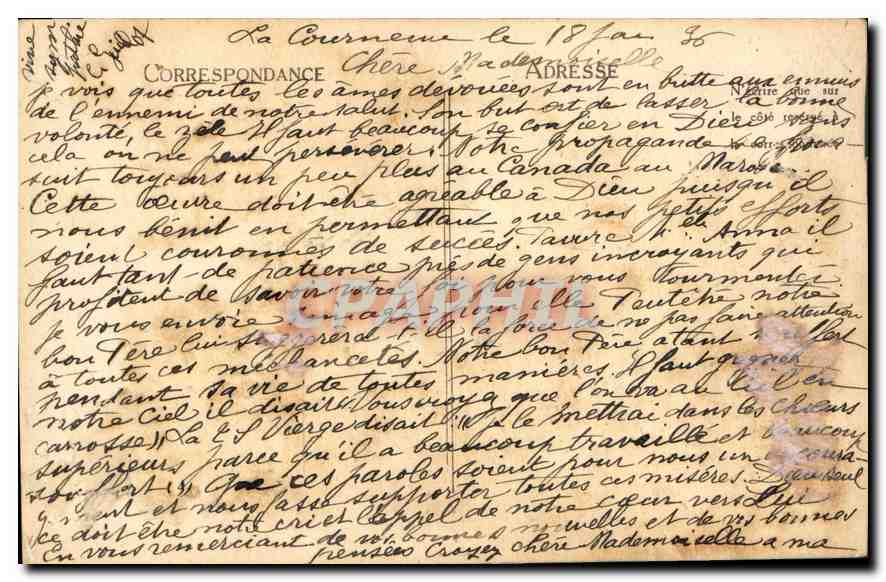 La Courneuve le 18 Jan 36
Chère Mademoiselle
CORRESPONDANCE ADRESSE
je vois que toutes les âmes dévouées sont en butte aux ennuis
N'écrire que sur
de l'ennemi de notre salut. Son but est de lasser la bonne
le côté réservé à
volonté, le zèle Il faut beaucoup se confier en Dieu sans
cela on ne peut persévérer. Notre propagande se pour-
suit toujours un peu plus au Canada au Maroc
Cette œuvre doit être agréable à Dieu puisqu'il
nous bénit en permettant que nos petits efforts
soient couronnés de succès. Pauvre Mlle Anna il
faut tant de patience près de gens incroyants qui
profitent de savoir votre foi pour vous tourmenter
je vous envoie image pour elle Peutêtre notre
bon Père lui la force de ne pas faire attention
à toutes ces méchancetés. Notre bon Père a tant souffert
pendant sa vie de toutes manières. Il faut gagner
notre Ciel il disait (Vous croyez que l'on va au Ciel en
carrosse) La T S Vierge disait (Je le mettrai dans les Chœurs
supérieurs parce qu'il a beaucoup travaillé et beaucoup
souffert) Que ces paroles soient pour nous un encoura-
gement et nous fasse supporter toutes ces misères. Dieu seul
ce doit être notre cri et l'appel de notre cœur vers Lui
En vous remerciant de vos bonnes nouvelles et de vos bonnes
pensées Croyez chère Mademoiselle a ma
CPAPHIL